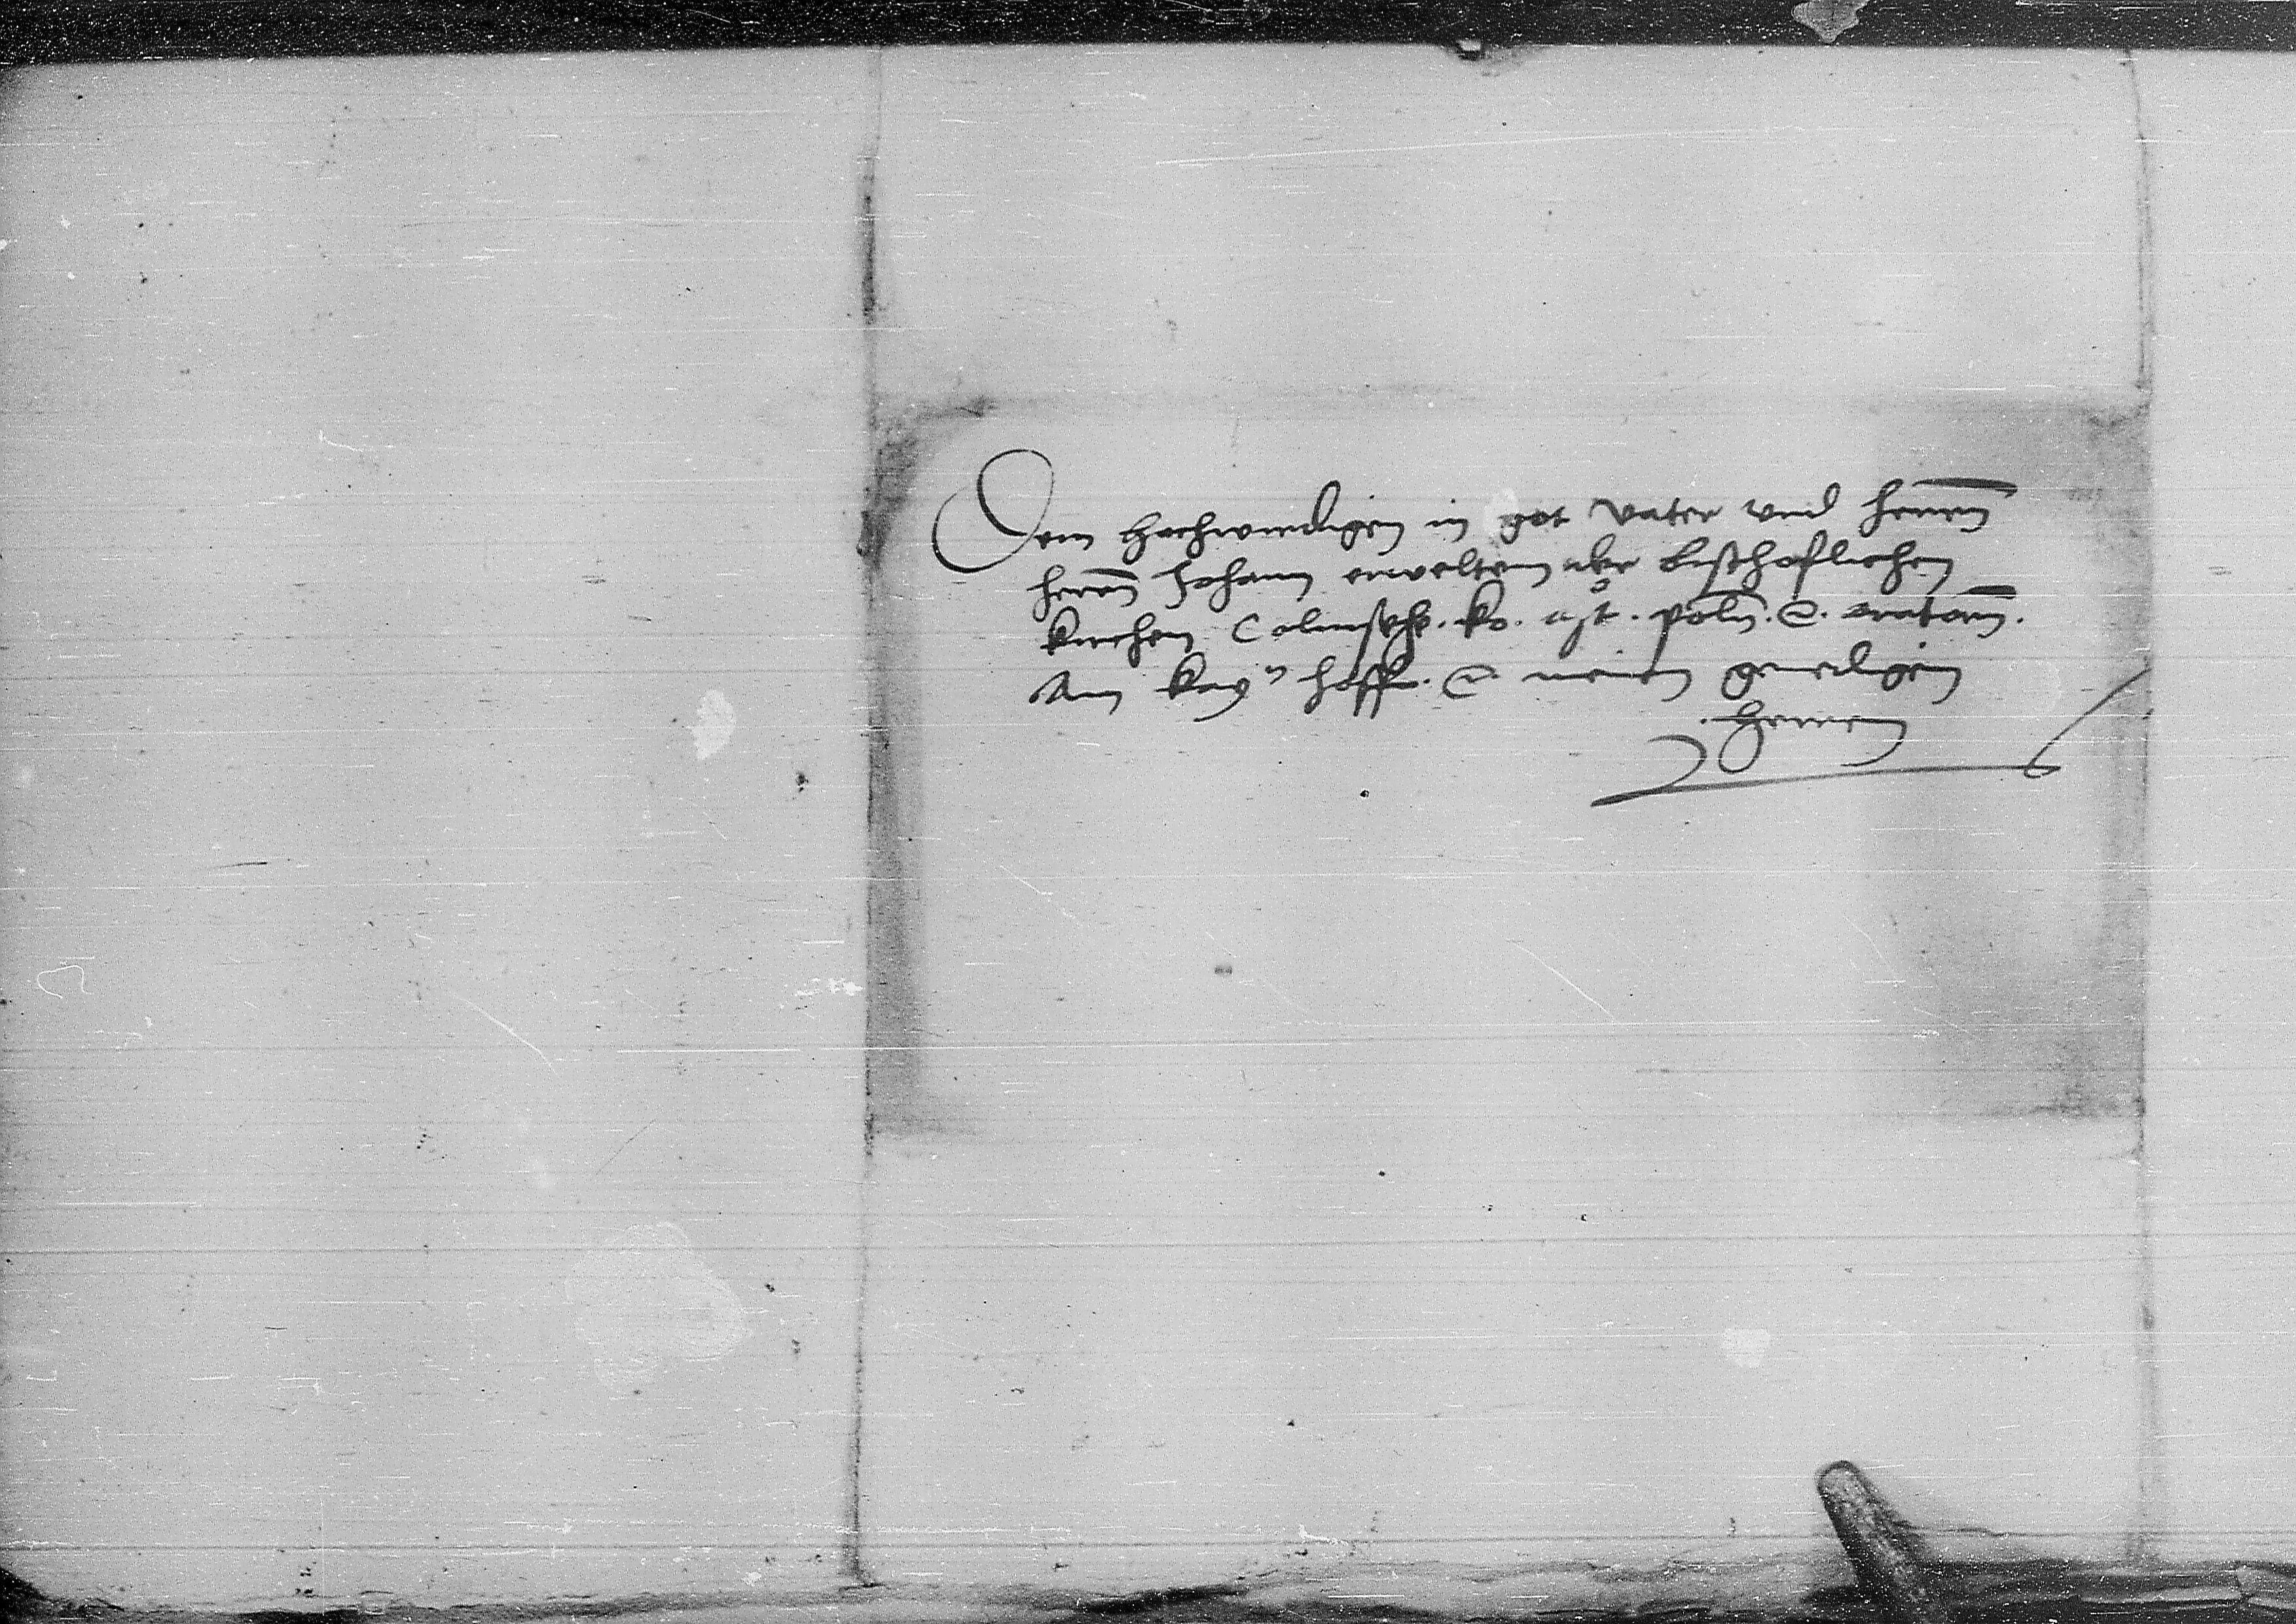 Dem hochwirdigen in got vater und hern̄
hern̄ Johann erwelten der bischoflichen
kirchen Colmsche. ko. mt. poln̄. ꝛc. oratorn̄.
Am kayn hoffe. ꝛc meinen genedigen
. herren